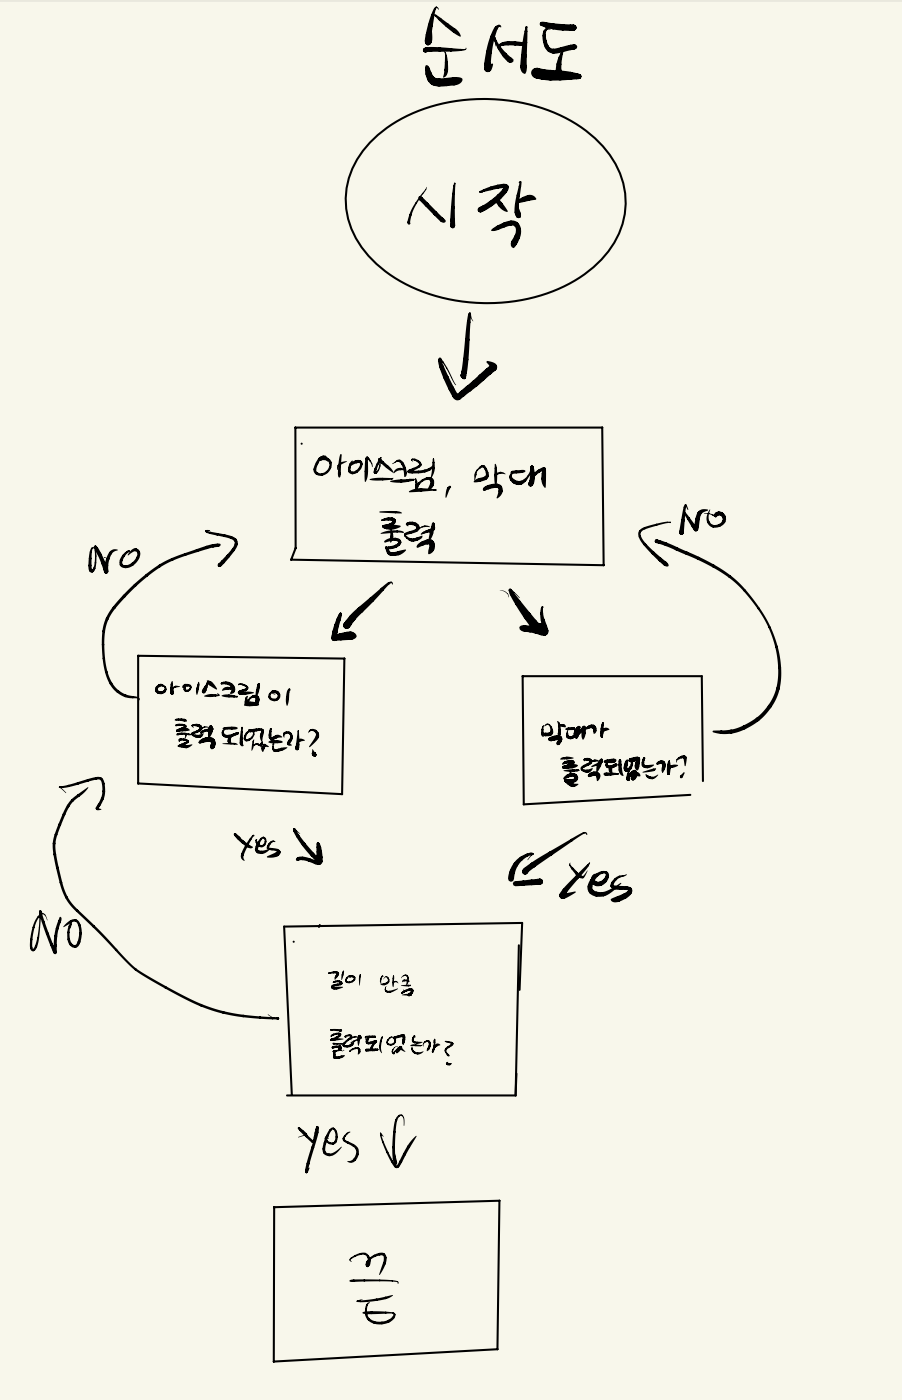 순서도
시작
아이스크림, 막대
출력
NO
NO
아이스크림이
출력되었는가?
막대가
출력되었는가?
yes
yes
길이 만큼
출력되었는가?
NO
yes
끝